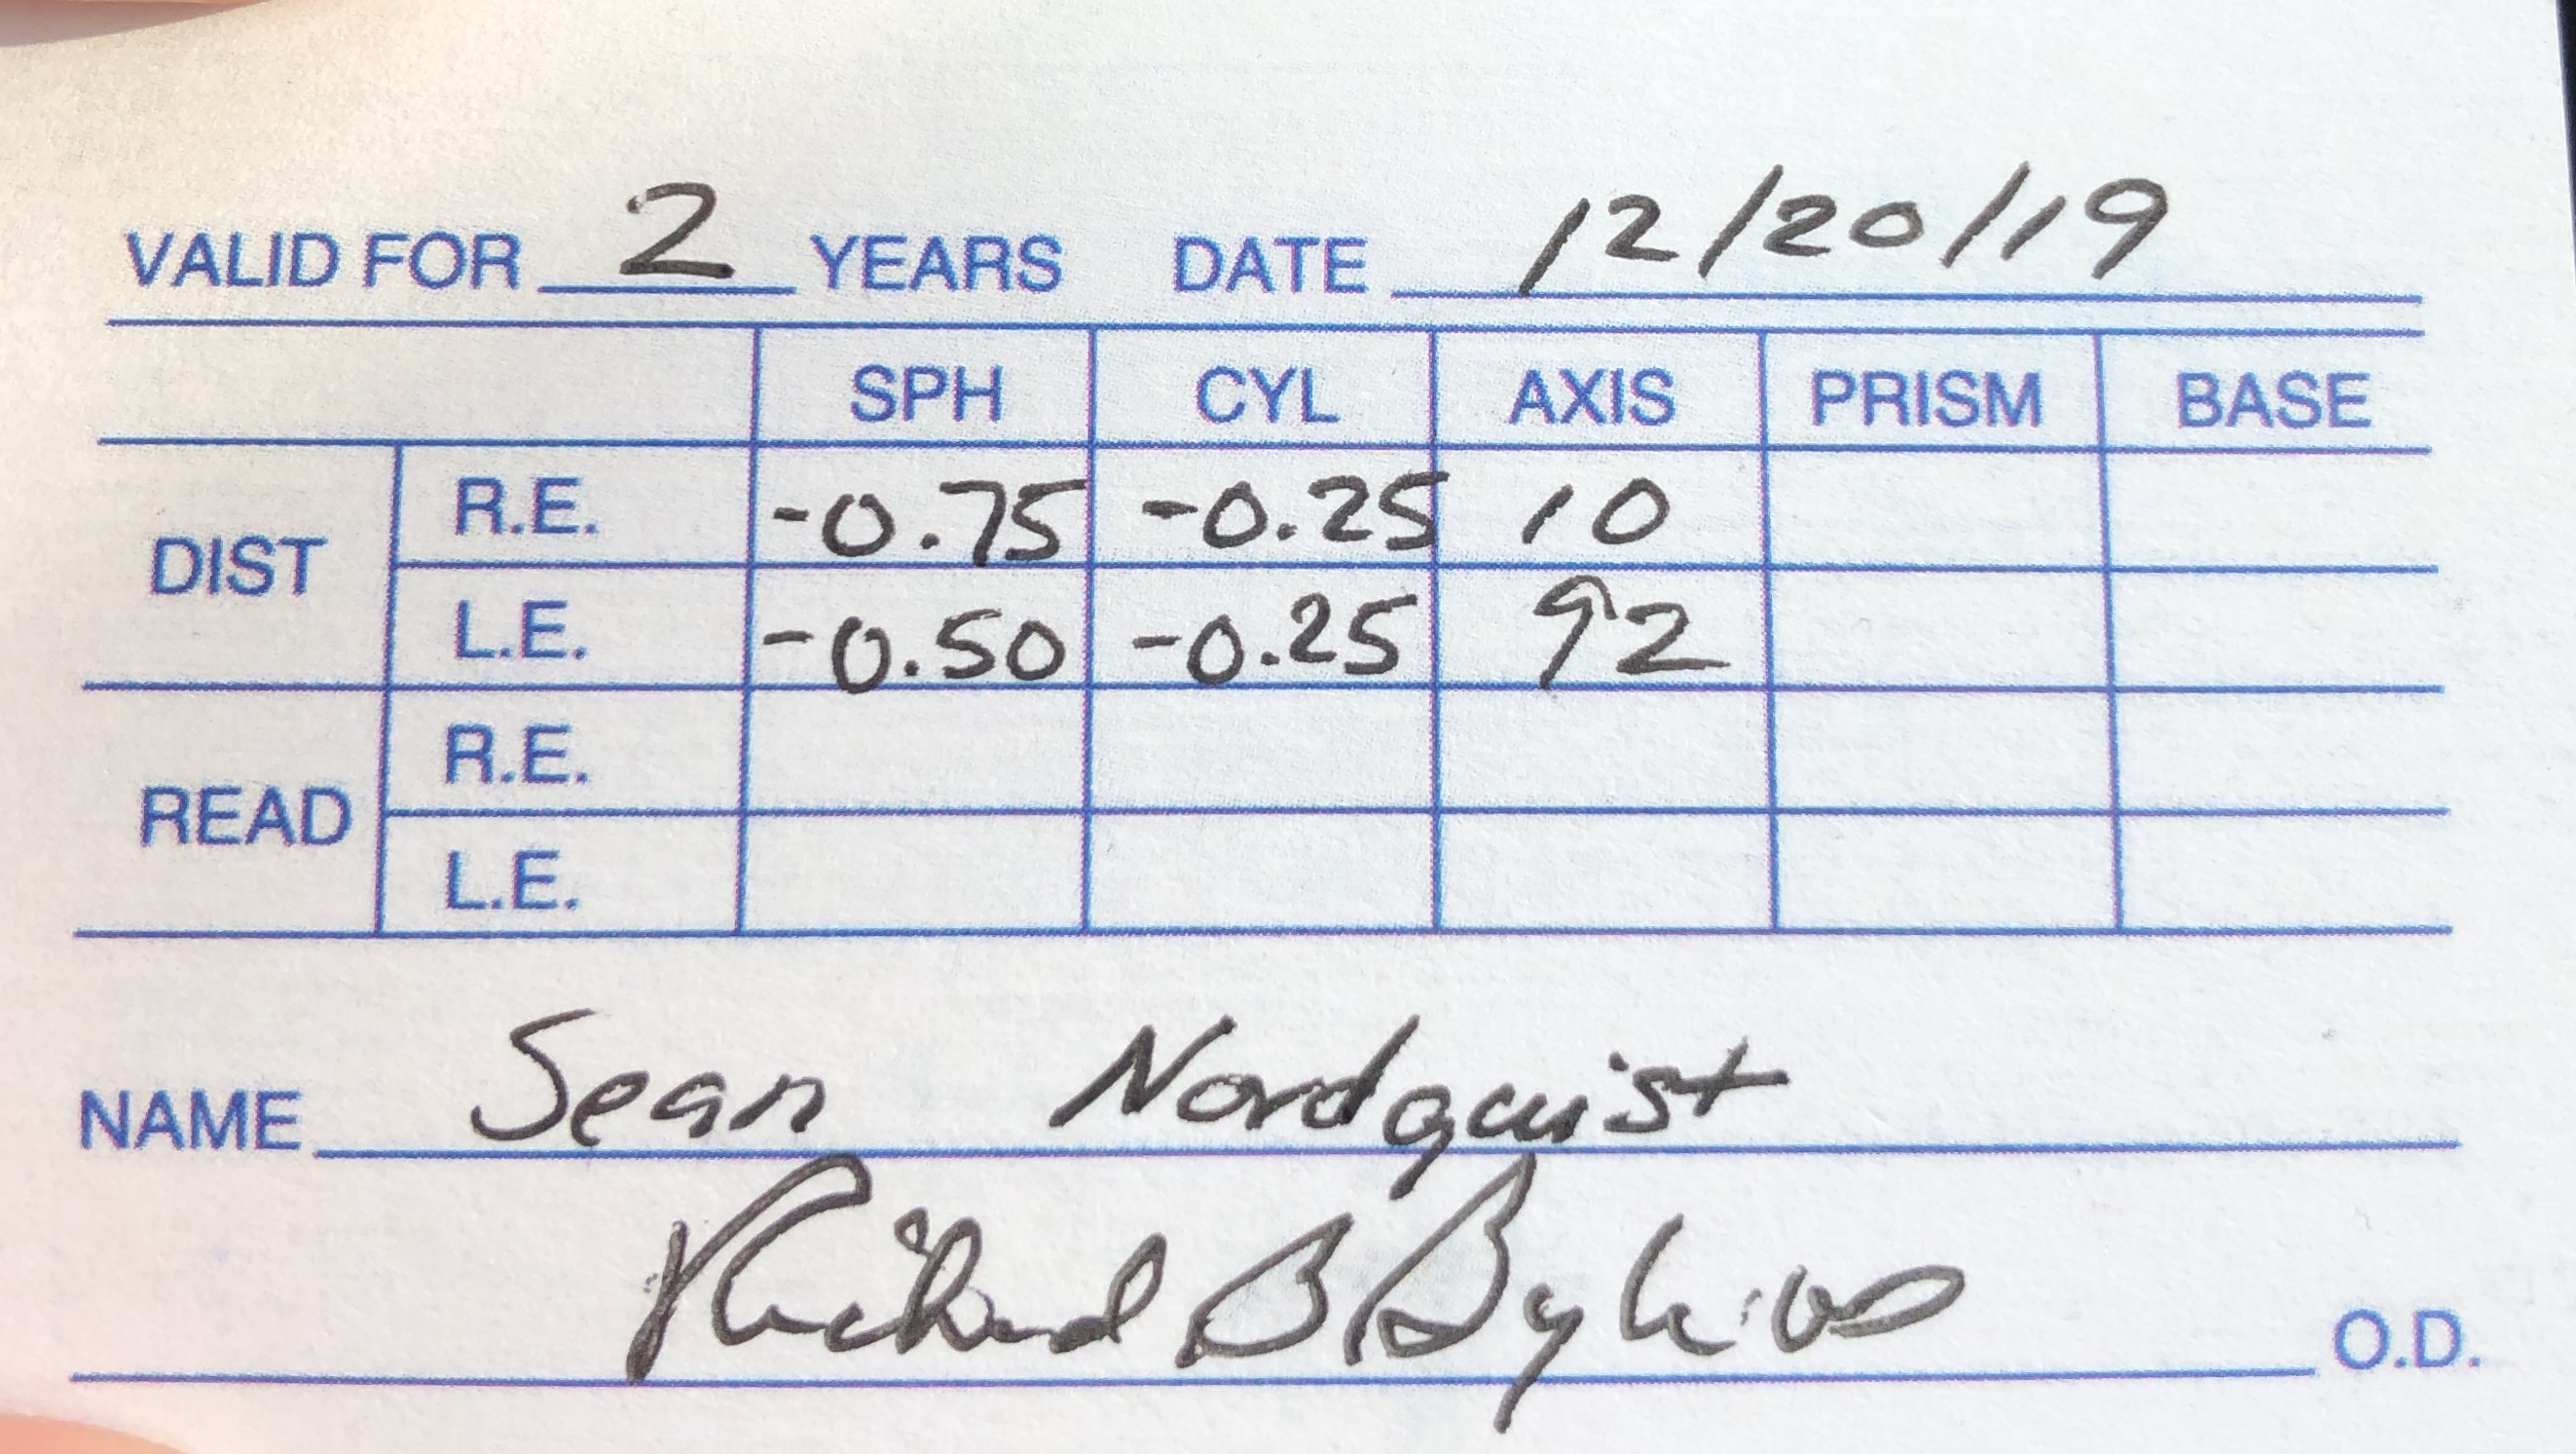 VALID FOR 2 YEARS DATE 12/20/19
SPH CYL AXIS PRISM BASE
DIST R.E. -0.75 -0.25 10
L.E. -0.50 -0.25 92
READ R.E.
L.E.
NAME Sean Nordquist
Richard B O.D.